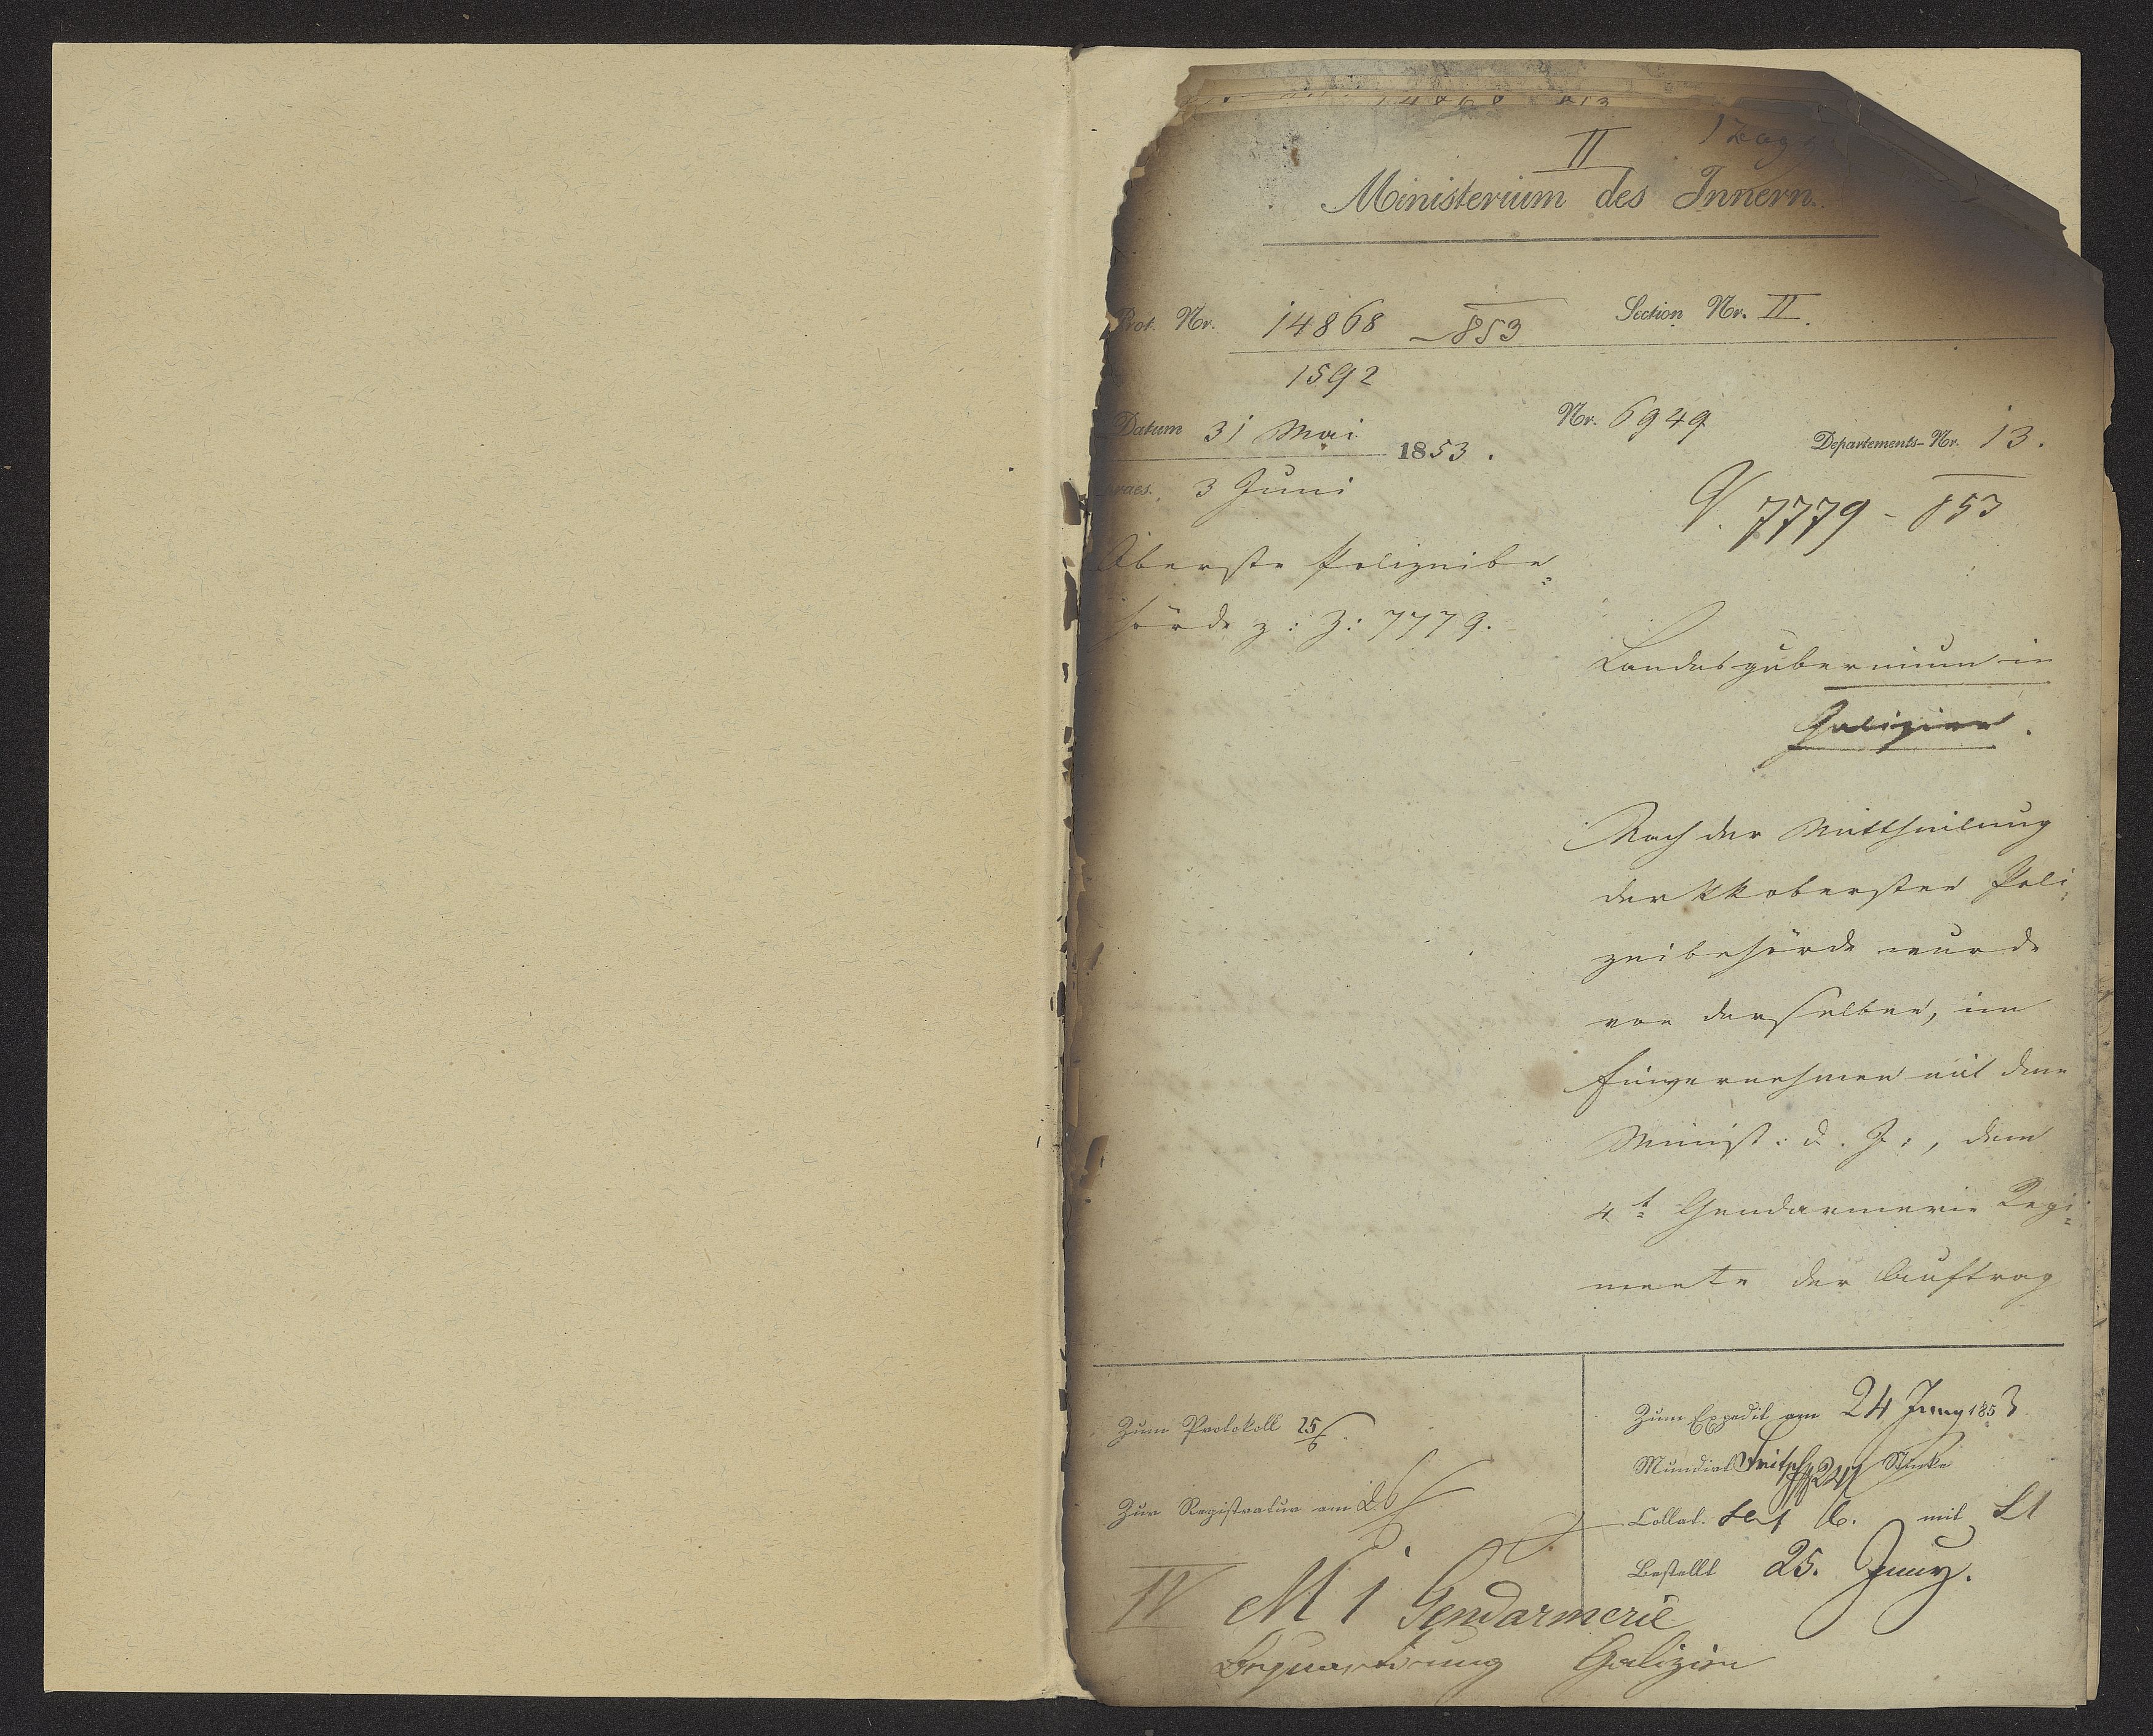 14868 813
II
Ministerium des Innern.
Prot. Nr. 14868 853
Section Nr. II.
1592
Datum 31 Mai 1853.
Nr. 6949
Departements-Nr. 13.
praes. 3 Juni
V. 7779 - 853
Oberste Polizeibe
hörde z: Z: 7779.
Landesgubernium in
Galizien.
Nach der Mittheilung
der kk obersten Poli
zeibehörde wurde
von derselben, im
Einvernehmen mit dem
Minist: d. I:, dem
4t Gendarmerie Regi
mente der Auftrag
Zum Protokoll 25/6
Zum Expedit am 24 Juny 1853
Mundirt Fritsch 24/ Stücke
Zur Registratur am 26/
Collat. mit L1
Bestellt 25. Juny.
IV M 1 Gendarmerie
Bequartirung Galizien